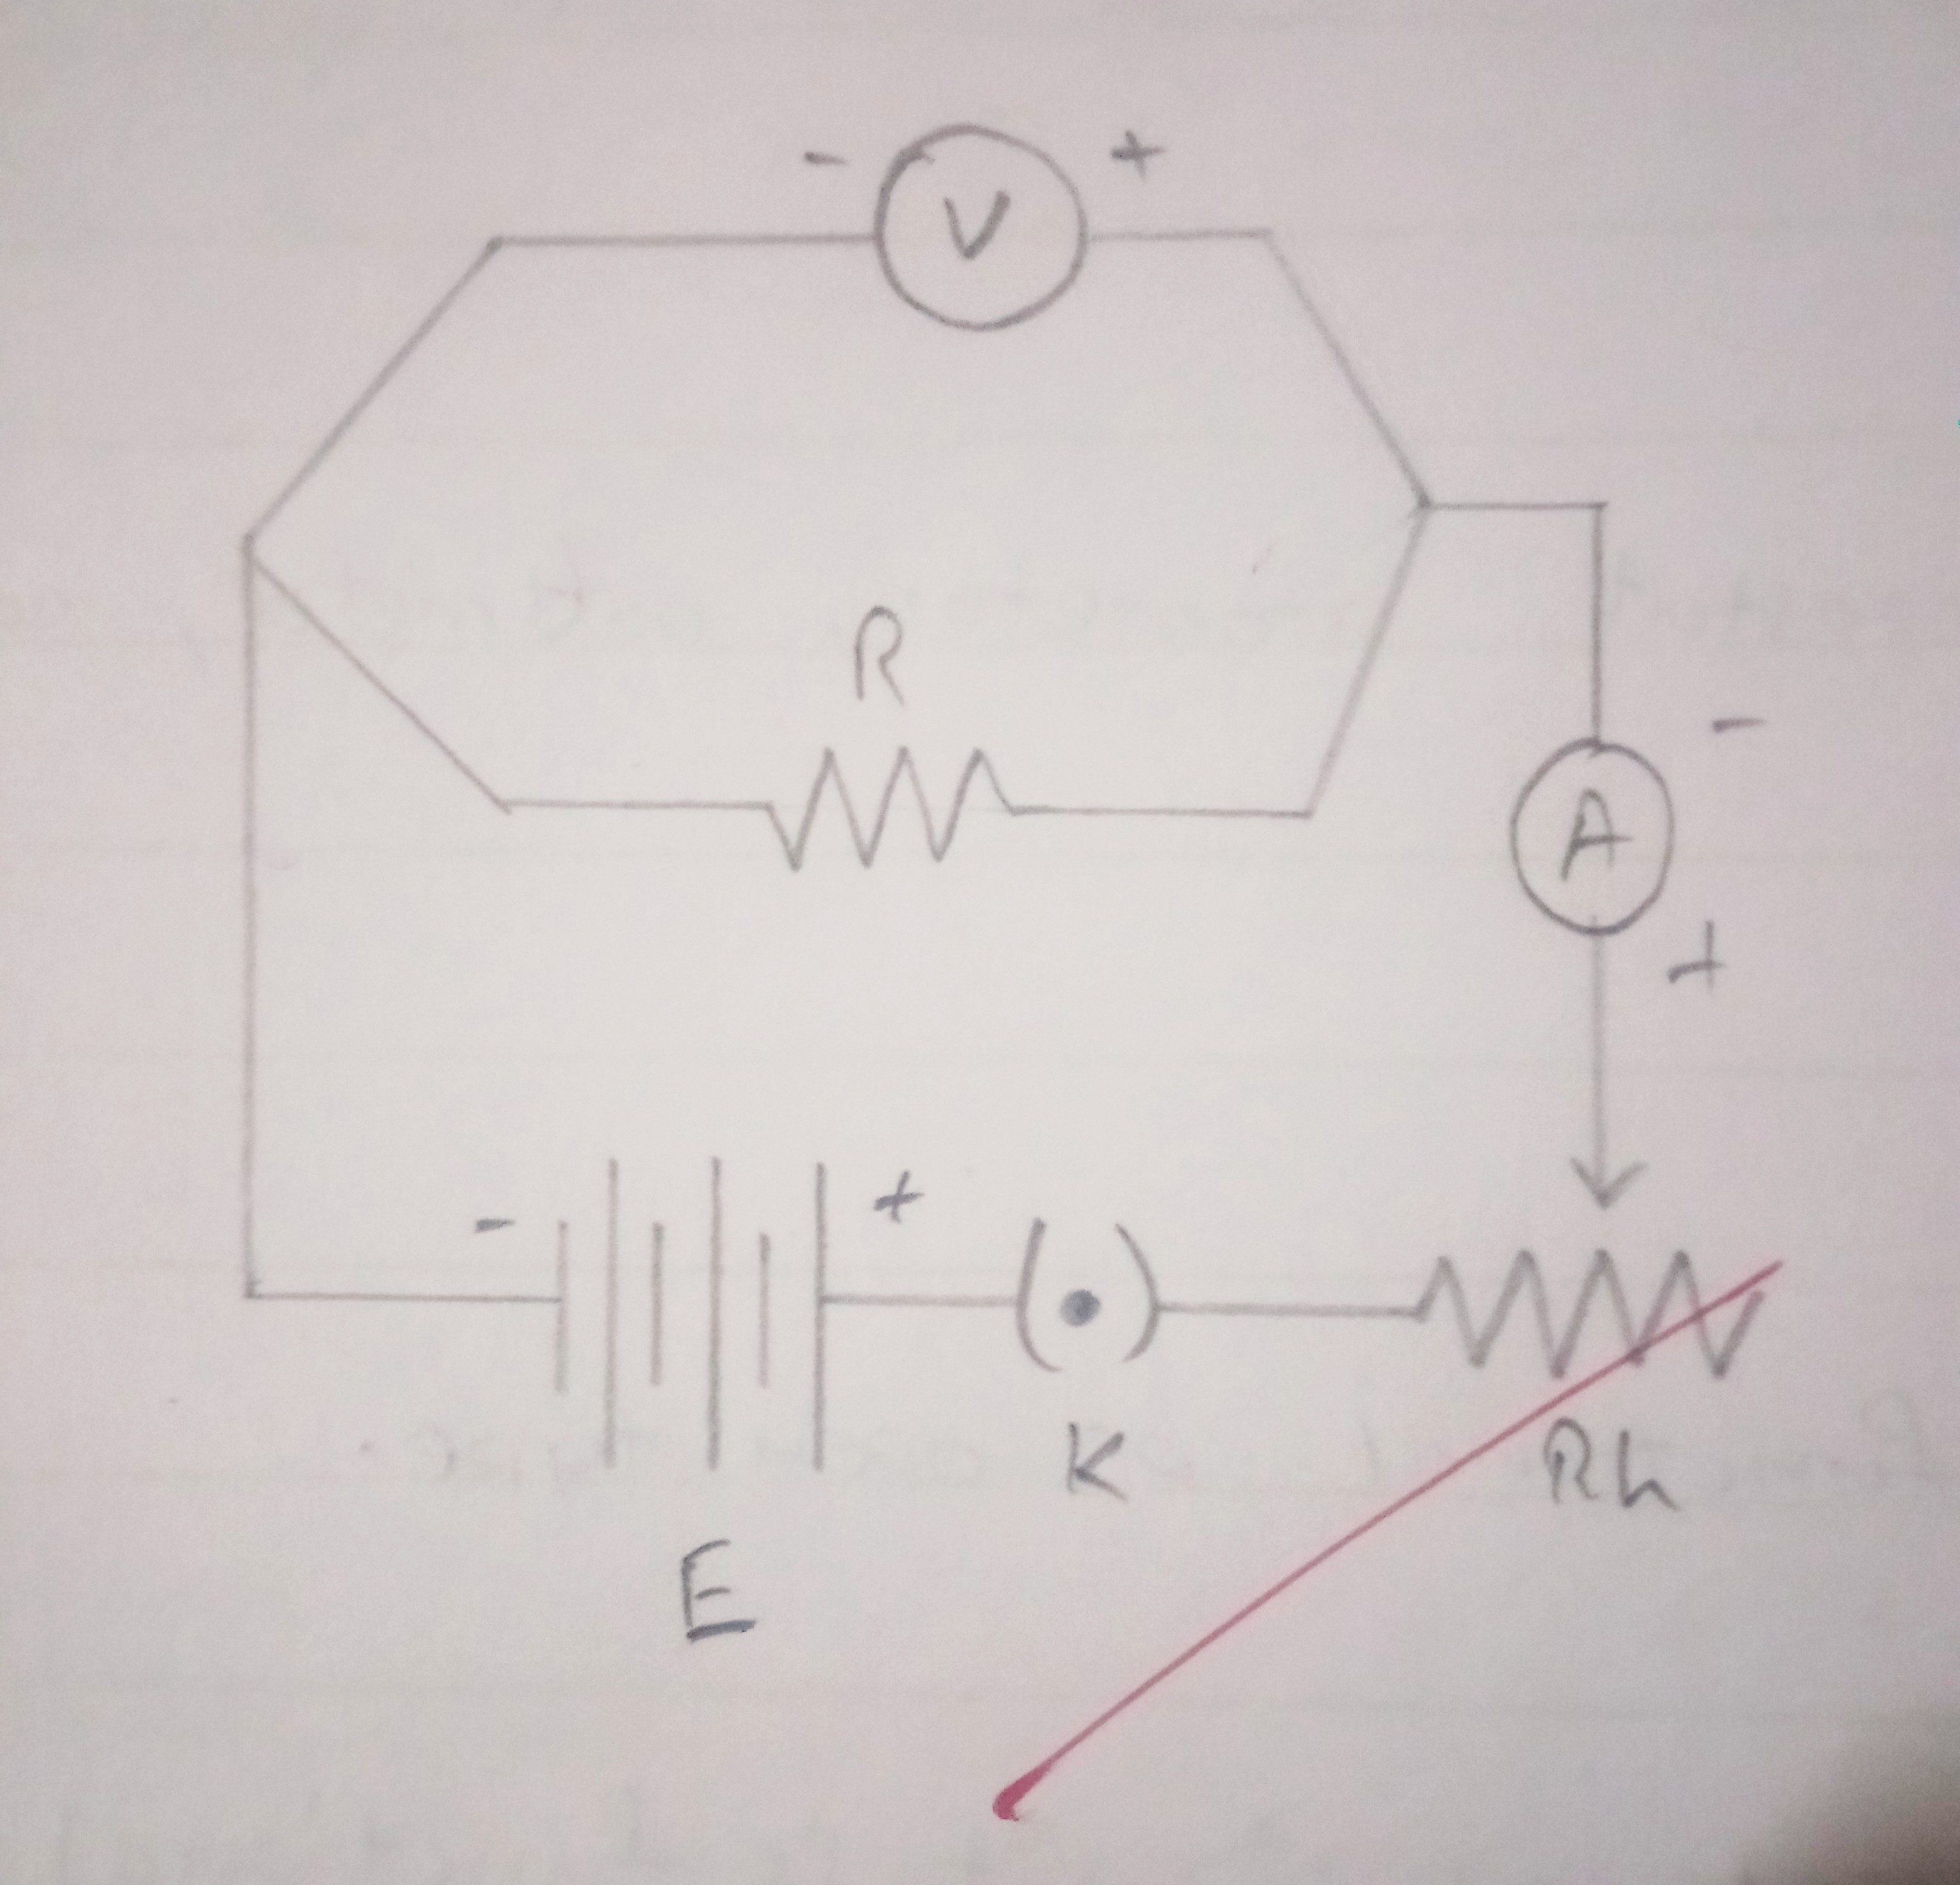 - V +
R
-
A
+
- +
K
Rh
E